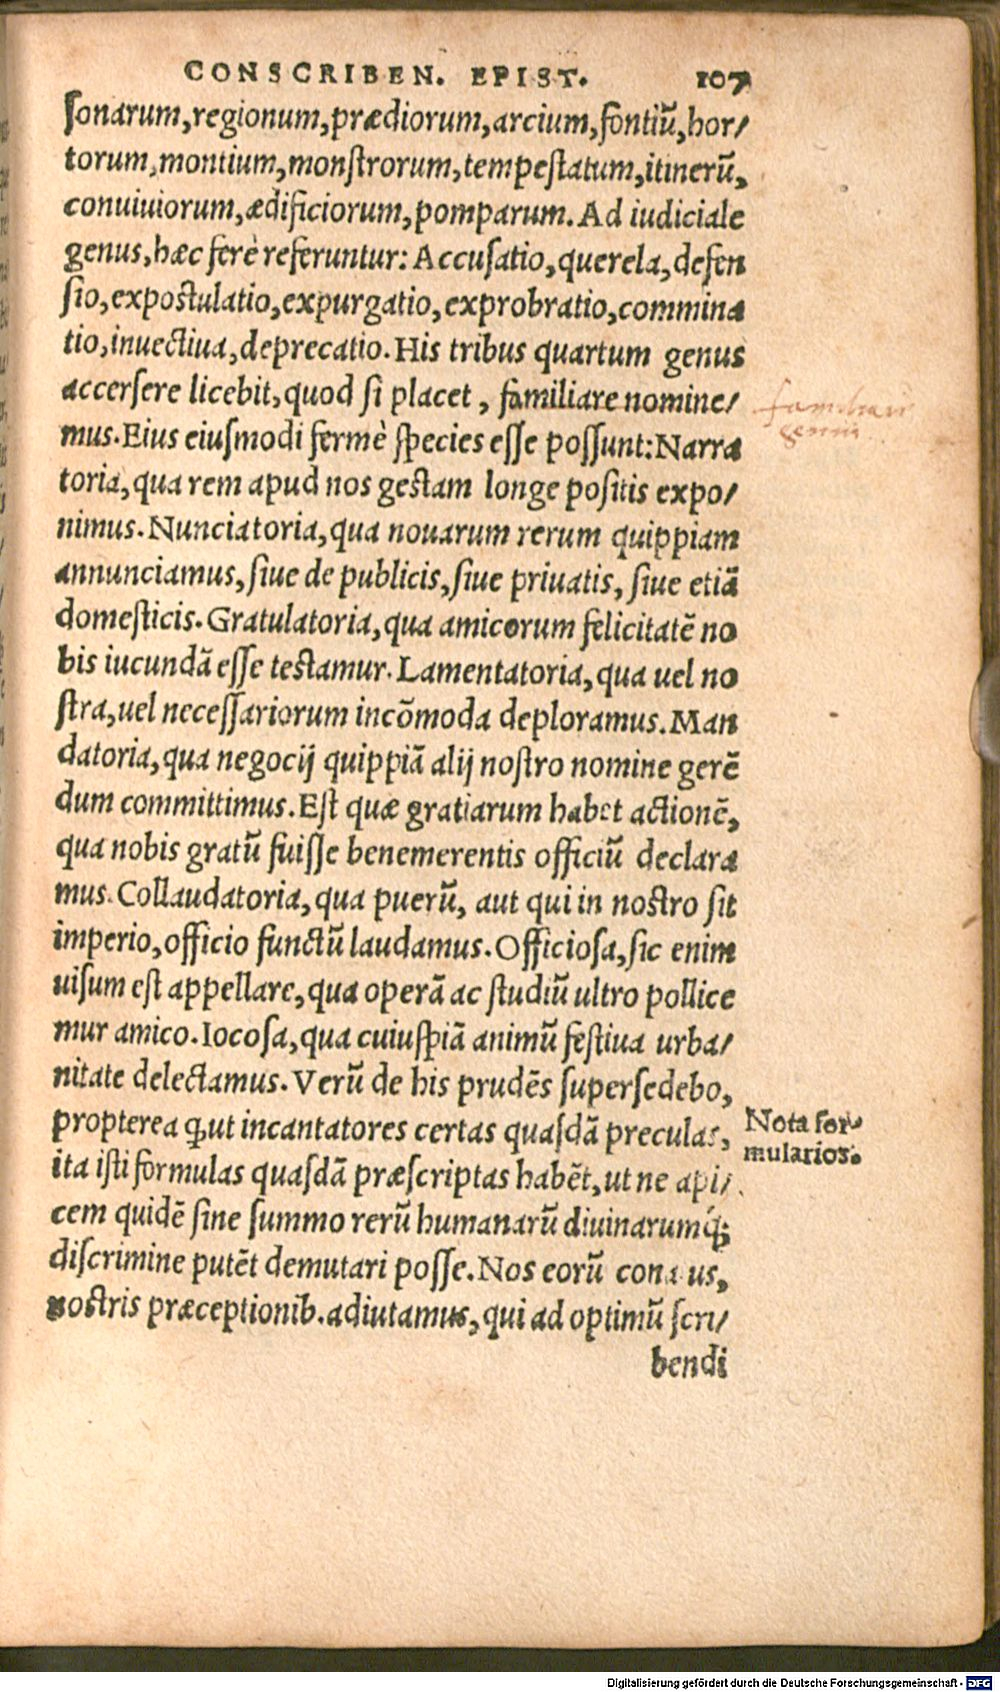 CONSCRIBEN. EPIST. 107
sonarum, regionum, prædiorum, arcium, fontiũ, hor/
torum, montium, monstrorum, tempestatum, itinerũ,
conuiuiorum, ædificiorum, pomparum. Ad iudiciale
genus, hæc ferè referuntur: Accusatio, querela, defen
sio, expostulatio, expurgatio, exprobratio, commina
tio, inuectiua, deprecatio. His tribus quartum genus
accersere licebit, quod si placet, familiare nomine/
mus. Eius eiusmodi fermè species esse possunt: Narra
toria, qua rem apud nos gestam longe positis expo/
nimus. Nunciatoria, qua nouarum rerum quippiam
annunciamus, siue de publicis, siue priuatis, siue etiã
domesticis. Gratulatoria, qua amicorum felicitatẽ no
bis iucundã esse testamur. Lamentatoria, qua uel no
stra, uel necessariorum incõmoda deploramus. Man
datoria, qua negocij quippiã alij nostro nomine gerẽ
dum committimus. Est quæ gratiarum habet actionẽ,
qua nobis gratũ fuisse benemerentis officiũ declara
mus. Collaudatoria, qua puerũ, aut qui in nostro sit
imperio, officio functũ laudamus. Officiosa, sic enim
uisum est appellare, qua operã ac studiũ ultro pollice
mur amico. Iocosa, qua cuiuspiã animũ festiua urba/
nitate delectamus. Verũ de his prudẽs supersedebo,
propterea ꝙ ut incantatores certas quasdã preculas,
ita isti formulas quasdã præscriptas habẽt, ut ne api/
cem quidẽ sine summo rerũ humanarũ diuinarumq́;
discrimine putẽt demutari posse. Nos eorũ cona us,
nostris præceptionib. adiutamus, qui ad optimũ scri/
bendi
familiare
genus
Nota for
mularios.
Digitalisierung gefördert durch die Deutsche Forschungsgemeinschaft - DFG